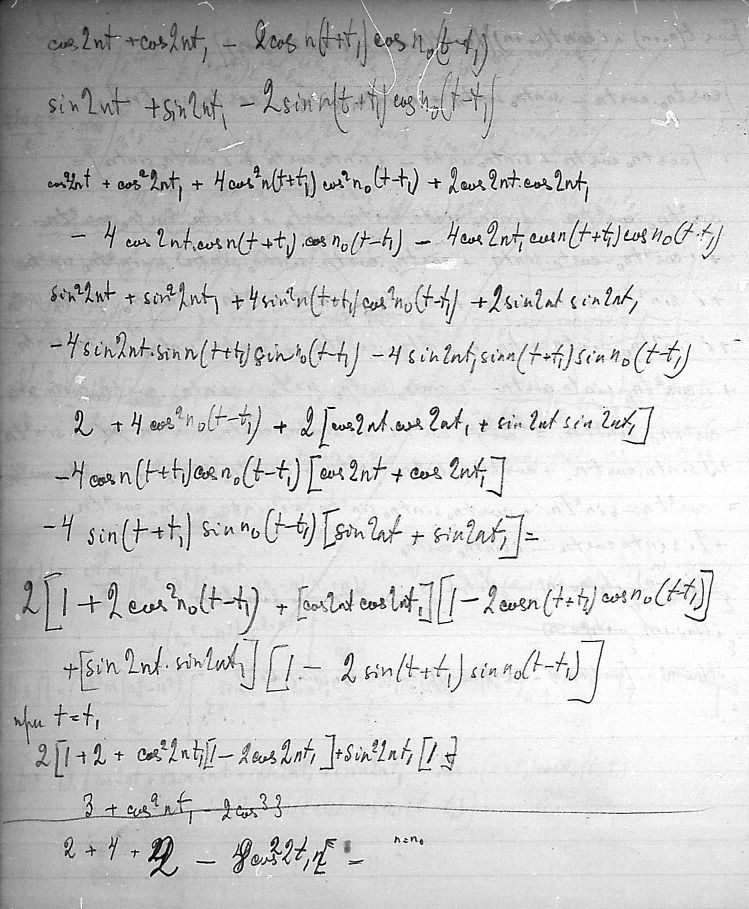 cos 2nt + cos 2nt₁ − 2cos n(t+t₁) cos n₀(t−t₁)
sin 2nt + sin 2nt₁ − 2 sin n(t+t₁) cos n₀(t−t₁)
cos²2nt + cos²2nt₁ + 4cos²n(t+t₁) cos²n₀(t−t₁) + 2cos 2nt·cos 2nt₁
− 4 cos 2nt·cos n(t+t₁)·cos n₀(t−t₁) − 4cos 2nt₁ cos n(t+t₁) cos n₀(t−t₁)
sin²2nt + sin²2nt₁ + 4sin²n(t+t₁) cos²n₀(t−t₁) + 2 sin 2nt sin 2nt₁
−4 sin 2nt·sin n(t+t₁) sin n₀(t−t₁) − 4 sin 2nt₁ sin n(t+t₁) sin n₀(t−t₁)
2 + 4 cos²n₀(t−t₁) + 2[cos 2nt·cos 2nt₁ + sin 2nt sin 2nt₁]
−4 cos n(t+t₁) cos n₀(t−t₁) [cos 2nt + cos 2nt₁]
−4 sin(t+t₁) sin n₀(t−t₁) [sin 2nt + sin 2nt₁] =
2[1 + 2 cos²n₀(t−t₁) + [cos 2nt cos 2nt₁][1 − 2cos n(t+t₁) cos n₀(t−t₁)]
+[sin 2nt·sin 2nt₁][1 − 2 sin(t+t₁) sin n₀(t−t₁)]]
при t=t₁
2[1+2+ cos²2nt₁[1−2cos 2nt₁]+sin²2nt₁[1
3 + cos²nt₁ − 2cos³
2 + 4 + 2 − 8cos²2t₁ − n=n₀